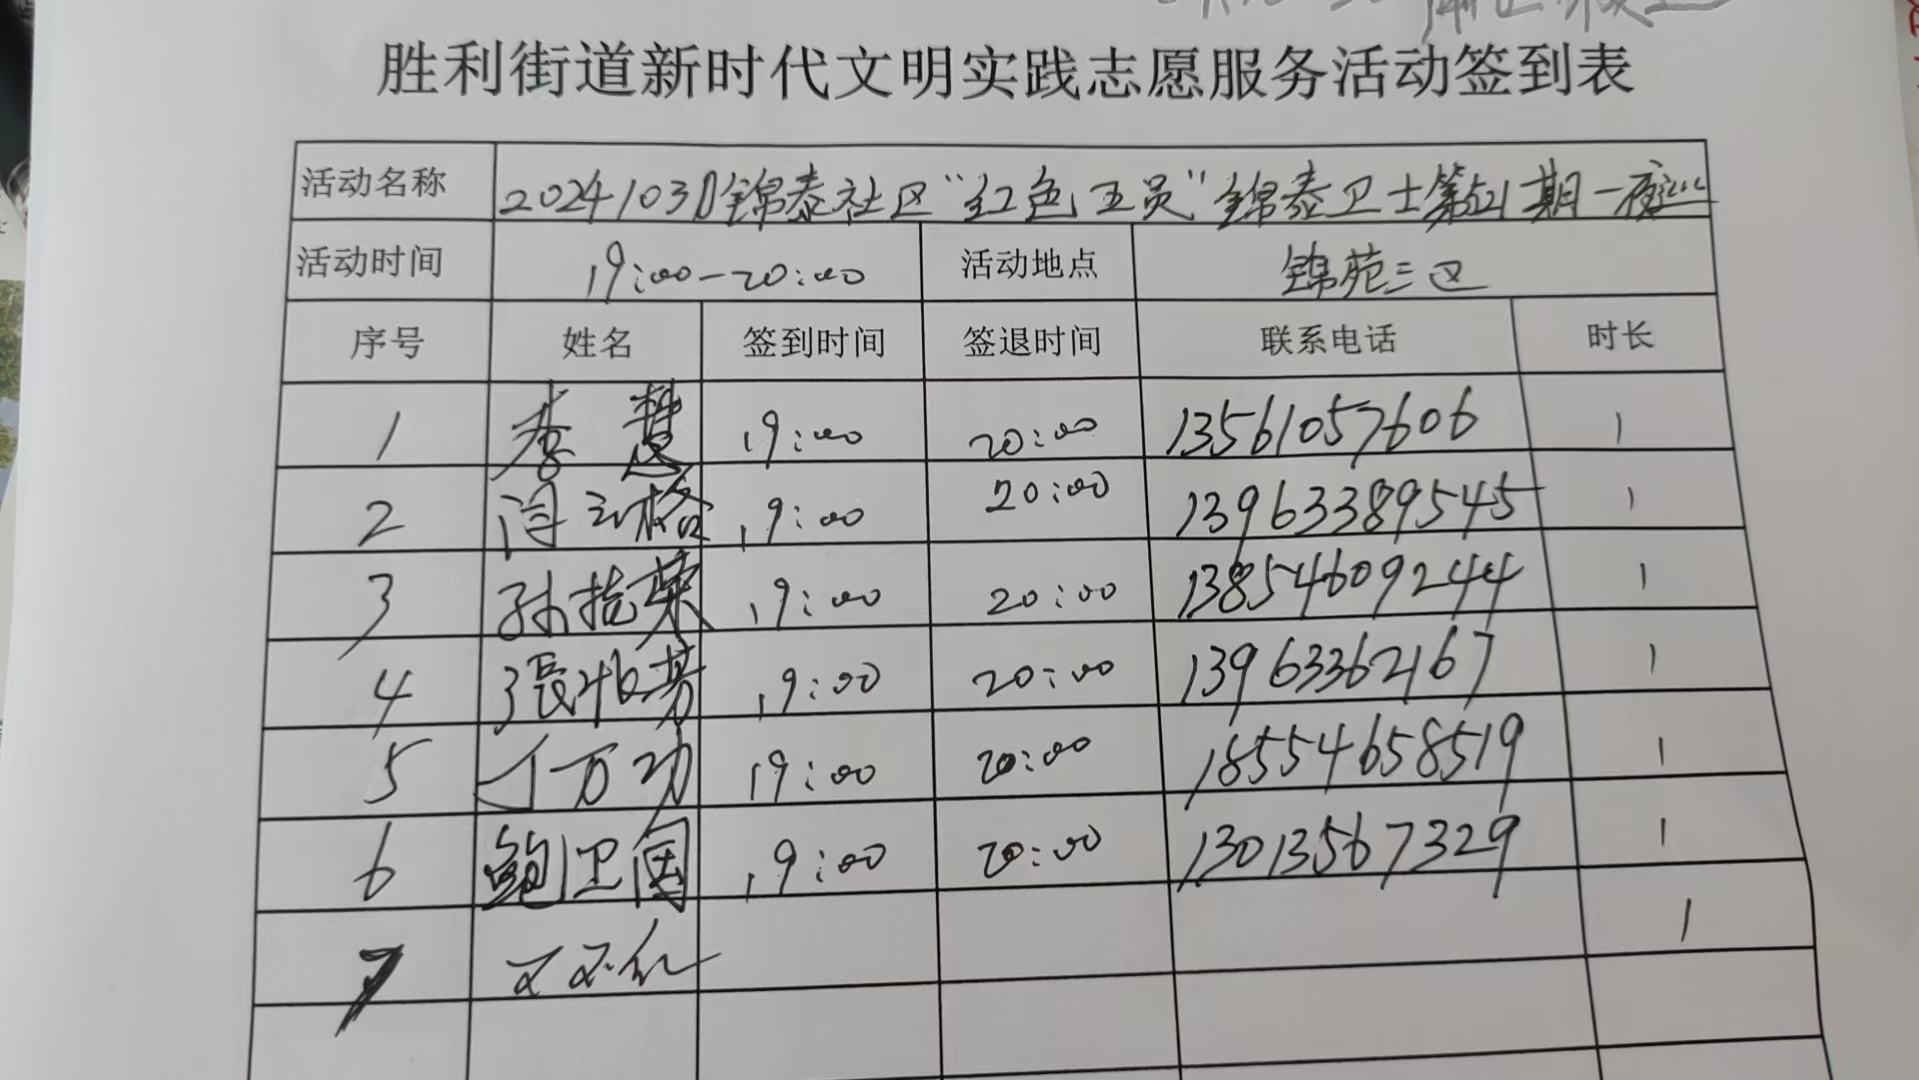 胜利街道新时代文明实践志愿服务活动签到表
活动名称 20241031锦泰社区“红色五员”锦泰卫士第521期一夜巡
活动时间 19:00-20:00 活动地点 锦苑三区
序号 姓名 签到时间 签退时间 联系电话 时长
1 李慧 19:00 20:00 13561057606 1
2 闫云格 19:00 20:00 13963389545 1
3 孙花荣 19:00 20:00 13854609244 1
4 張北芳 19:00 20:00 13963362167 1
5 丁万功 19:00 20:00 18554658519 1
6 鲍卫国 19:00 20:00 13013567329 1
7 1